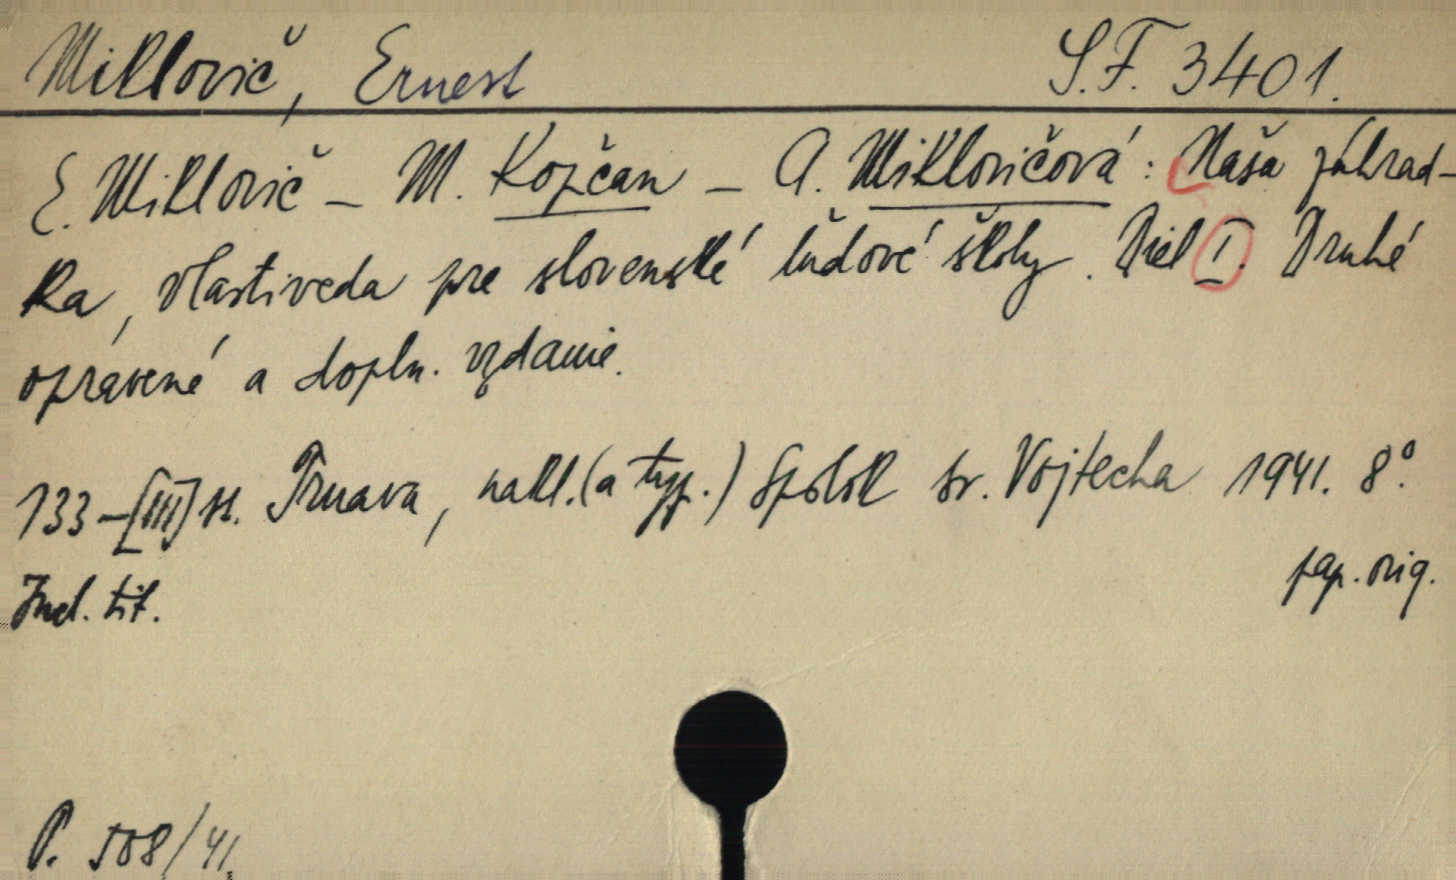 Miklovič, Ernest S.F. 3401.
E. Miklovič – M. Kopčan – A. Miklovičová: Naša záhrad-
ka, vlastiveda pre slovenské ľudové školy. Diel I. Druhé
opravené a dopln. vydanie.
133–[III] st. Trnava, nakl. (a typ.) Spolok sv. Vojtecha 1941. 8°.
pap. orig.
Incl. tit.
P. 508/41.